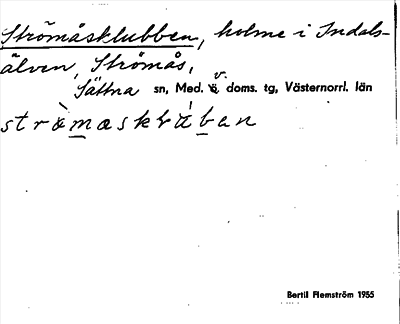 Strömåsklubben, holme i Indals-
älven, Strömås,
Sättna sn, Med. v. doms. tg, Västernorrl. län
Bertil Flemström 1955